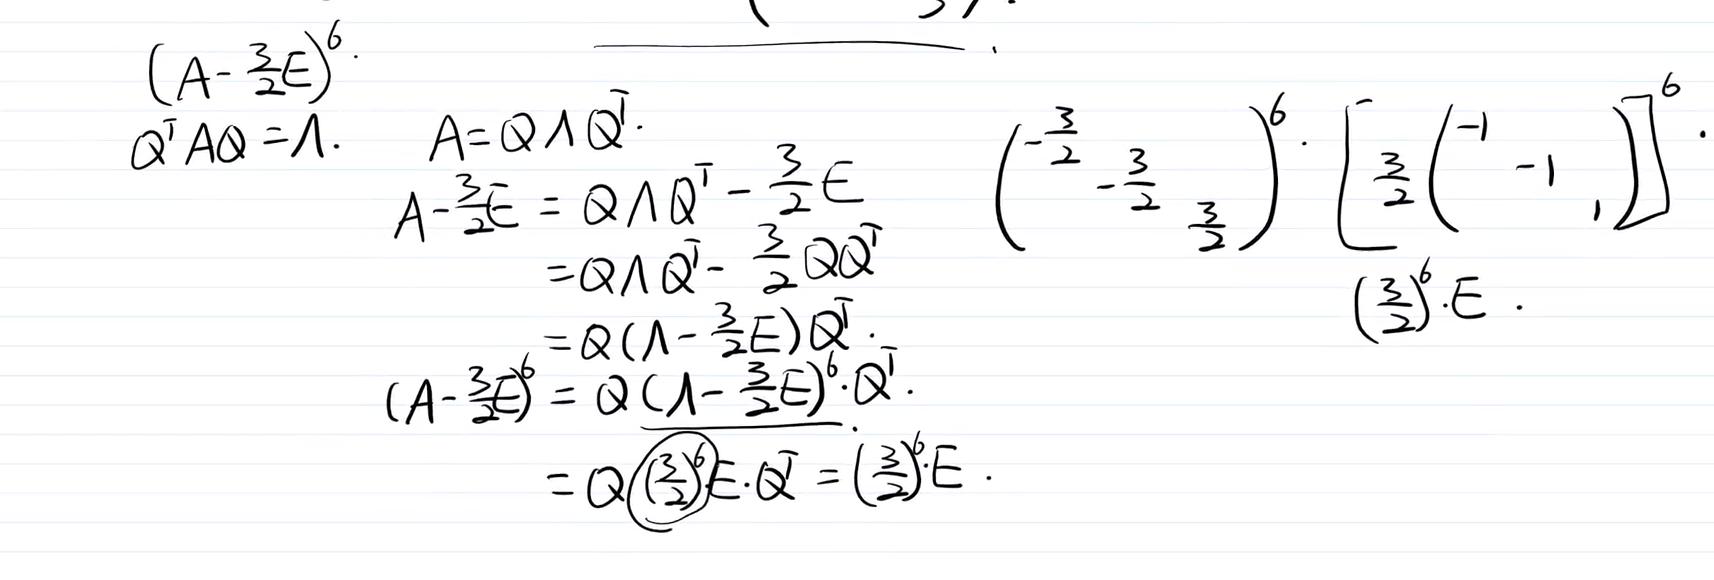 (A-3/2E)^6.
Q^TAQ=Λ. A=QΛQ^T.
A-3/2E=QΛQ^T-3/2E
=QΛQ^T-3/2QQ^T
=Q(Λ-3/2E)Q^T.
(A-3/2E)^6=Q(Λ-3/2E)^6·Q^T.
=Q(3/2)^6E·Q^T=(3/2)^6·E.
(-3/2 -3/2 3/2)^6. [3/2(-1 -1 1)]^6.
(3/2)^6·E.